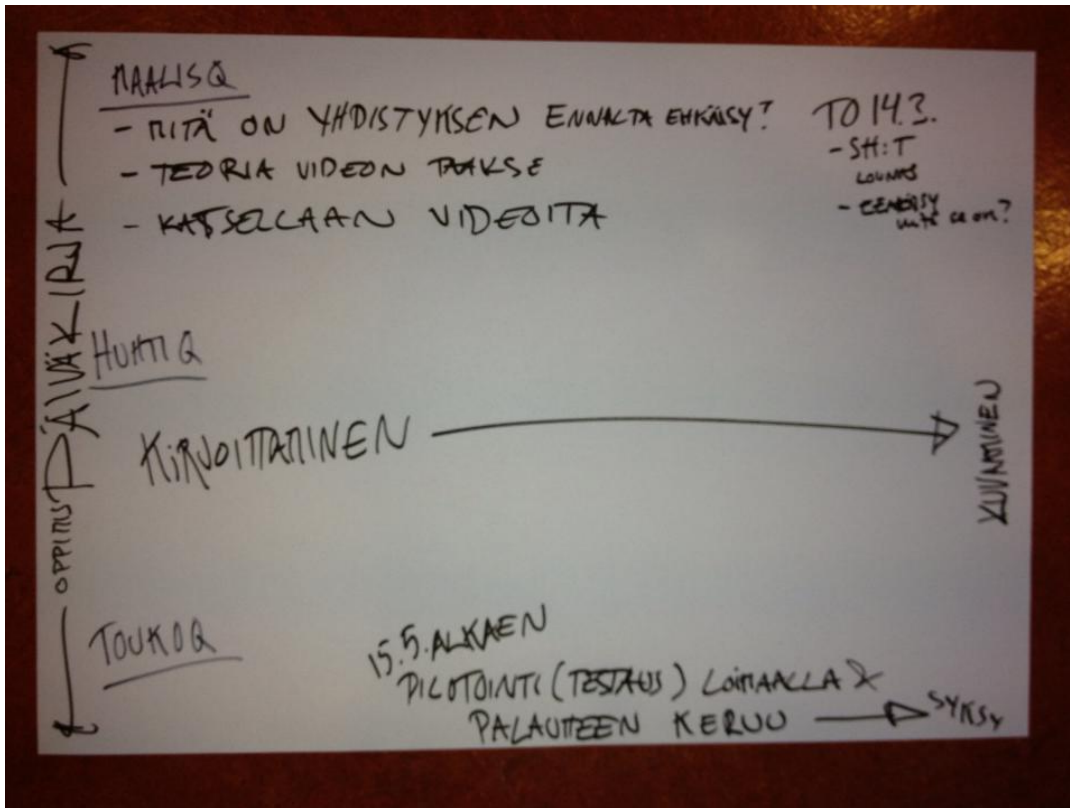 MAALISQ
- MITÄ ON YHDISTYKSEN ENNALTA EHKÄISY?
- TEORIA VIDEON TAAKSE
- KATSELLAAN VIDEOITA
TO 14.3.
- SH:T
LOUNAS
- EENÄISY
mitä se on?
OPPIMISPÄIVÄKIRJA
HUHTIQ
KIRJOITTAMINEN
KUVAAMINEN
TOUKOQ
15.5. ALKAEN
PILOTOINTI (TESTAUS) LOIMAALLA &
PALAUTTEEN KERUU
SYKSY